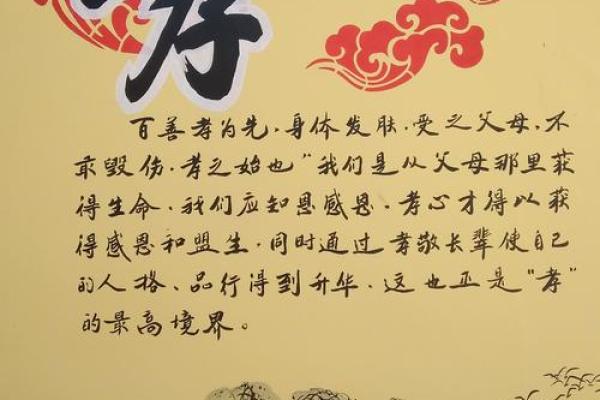 孝
百善孝为先,身体发肤,受之父母,不
敢毁伤,孝之始也"我们是从父母那里获
得生命,我们应知恩感恩,孝心才得以获
得感恩和盟生,同时通过孝敬长辈使自己
的人格、品行得到升华,这也正是"孝"
的最高境界。